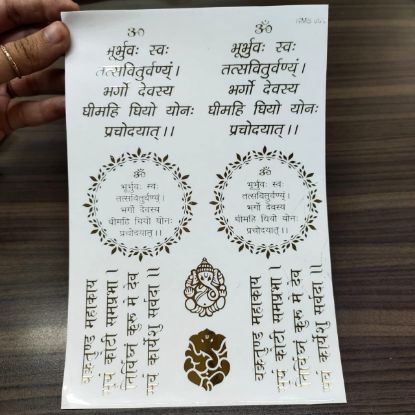 ॐ
भूर्भुवः स्वः
तत्सवितुर्वण्यं।
भर्गो देवस्य
धीमहि धियो योनः
प्रचोदयात्।।
ॐ
भूर्भुवः स्वः
तत्सवितुर्वण्यं।
भर्गो देवस्य
धीमहि धियो योनः
प्रचोदयात्।।
भूर्भुवः स्वः
तत्सवितुर्वण्यं।
भर्गो देवस्य
धीमहि धियो योनः
प्रचोदयात्।।
भूर्भुवः स्वः
तत्सवितुर्वण्यं।
भर्गो देवस्य
धीमहि धियो योनः
प्रचोदयात्।।
वक्रतुण्ड महाकाय
सूर्य कोटी समप्रभा।
निर्विघ्नं कुरू मे देव
सर्व कार्येशु सर्वदा।।
वक्रतुण्ड महाकाय
सूर्य कोटी समप्रभा।
निर्विघ्नं कुरू मे देव
सर्व कार्येशु सर्वदा।।